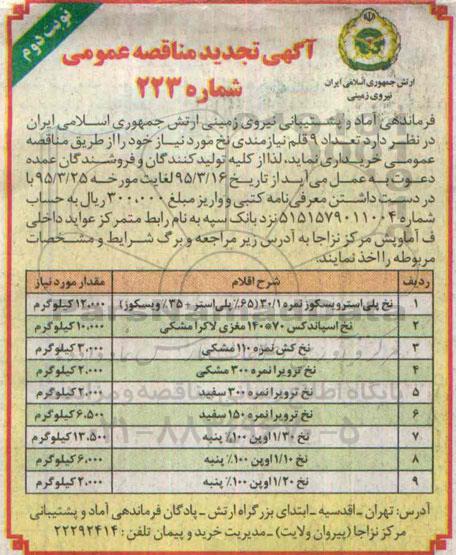 نوبت دوم
ارتش جمهوری اسلامی ایران
نیروی زمینی
آگهی تجدید مناقصه عمومی
شماره ۲۲۳
فرماندهی آماد و پشتیبانی نیروی زمینی ارتش جمهوری اسلامی ایران
در نظر دارد تعداد ۹ قلم نیازمندی نخ مورد نیاز خود را از طریق مناقصه
عمومی خریداری نماید، لذا از کلیه تولیدکنندگان و فروشندگان عمده
دعوت به عمل می‌آید از تاریخ ۹۵/۳/۱۶ لغایت مورخه ۹۵/۳/۲۵ با
در دست داشتن معرفی‌نامه کتبی و واریز مبلغ ۳۰۰،۰۰۰ ریال به حساب
شماره ۵۱۵۱۵۷۹۰۱۱۰۰۴ نزد بانک سپه به نام رابط متمرکز عواید داخلی
ف آماوپش مرکز نزاجا به آدرس زیر مراجعه و برگ شرایط و مشخصات
مربوطه را اخذ نمایند.
ردیف شرح اقلام مقدار مورد نیاز
۱ نخ پلی‌استر ویسکوز نمره ۳۰/۱ (۶۵٪ پلی‌استر + ۳۵٪ ویسکوز) ۱۲،۰۰۰ کیلوگرم
۲ نخ اسپاندکس ۷۰*۱۴۰ مغزی لاکرا مشکی ۱۰،۰۰۰ کیلوگرم
۳ نخ کش نمره ۱۱۰ مشکی ۳،۰۰۰ کیلوگرم
۴ نخ ترویرا نمره ۳۰۰ مشکی ۲،۰۰۰ کیلوگرم
۵ نخ ترویرا نمره ۳۰۰ سفید ۲،۰۰۰ کیلوگرم
۶ نخ ترویرا نمره ۱۵۰ سفید ۶،۵۰۰ کیلوگرم
۷ نخ ۱/۳۰ اوپن ۱۰۰٪ پنبه ۱۳،۵۰۰ کیلوگرم
۸ نخ ۱/۱۰ اوپن ۱۰۰٪ پنبه ۶،۰۰۰ کیلوگرم
۹ نخ ۱/۲۰ اوپن ۱۰۰٪ پنبه ۲،۰۰۰ کیلوگرم
آدرس: تهران ـ اقدسیه ـ ابتدای بزرگراه ارتش ـ پادگان فرماندهی آماد و پشتیبانی
مرکز نزاجا (پیروان ولایت) ـ مدیریت خرید و پیمان تلفن: ۲۲۲۹۲۴۱۴